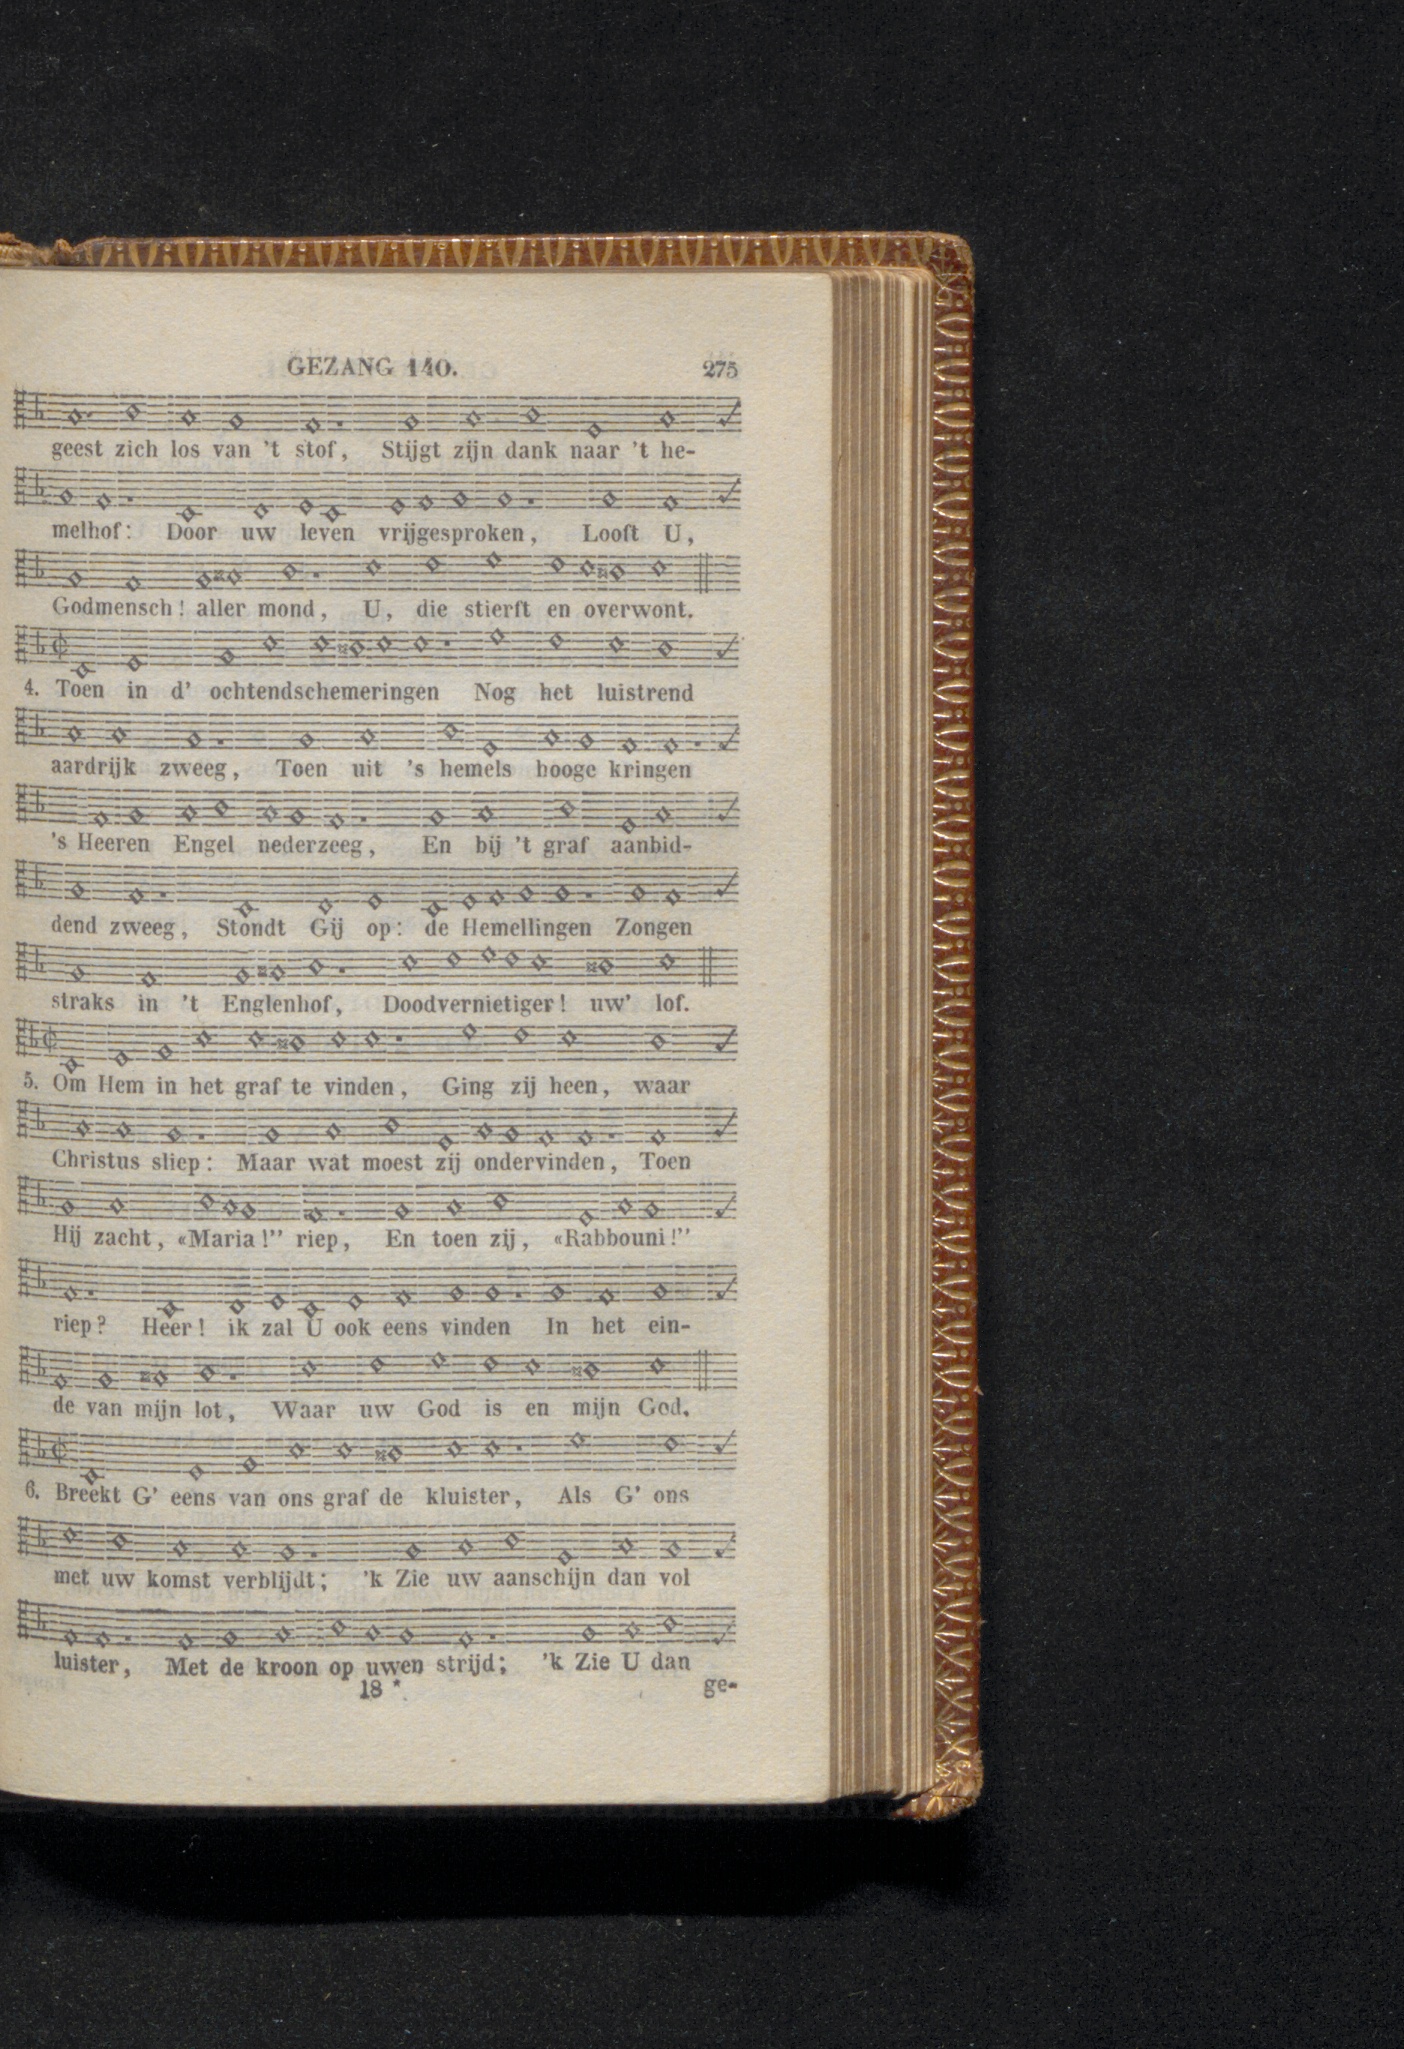 GEZANG 140. 275
geest zich los van 't stof, Stijgt zijn dank naar 't he-
melhof: Door uw leven vrijgesproken, Looft U,
Godmensch! aller mond, U, die stierft en overwont.
4. Toen in d' ochtendschemeringen Nog het luistrend
aardrijk zweeg, Toen uit 's hemels hooge kringen
's Heeren Engel nederzeeg, En bij 't graf aanbid-
dend zweeg, Stondt Gij op: de Hemellingen Zongen
straks in 't Englenhof, Doodvernietiger! uw' lof.
5. Om Hem in het graf te vinden, Ging zij heen, waar
Christus sliep: Maar wat moest zij ondervinden, Toen
Hij zacht, «Maria!” riep, En toen zij, «Rabbouni!”
riep? Heer! ik zal U ook eens vinden In het ein-
de van mijn lot, Waar uw God is en mijn God.
6. Breekt G' eens van ons graf de kluister, Als G' ons
met uw komst verblijdt; 'k Zie uw aanschijn dan vol
luister, Met de kroon op uwen strijd; 'k Zie U dan
18 * ge-